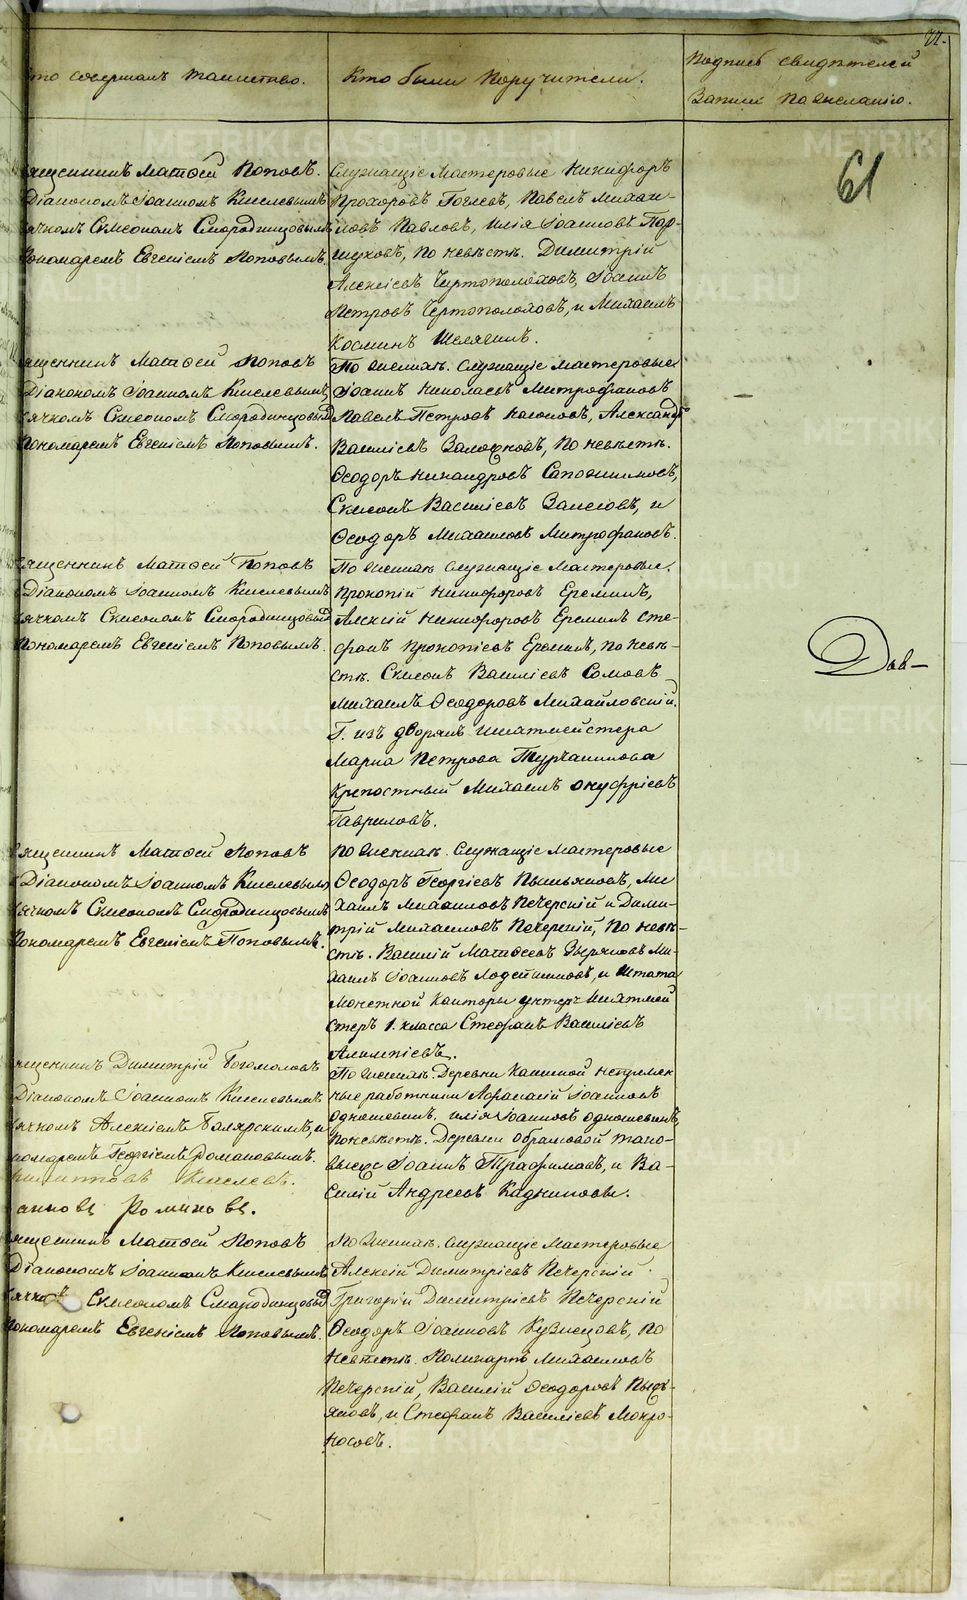 22.
то совершалъ таинство.
Кто были поручители.
Подпись свидѣтелей
записи по желанію.
61
ященникъ Матѳей Поповъ.
Діакономъ Іоанномъ Киселевымъ
ячкомъ Симеономъ Смородинцовымъ
Пономаремъ Евгеніемъ Поповымъ.
Служащіе мастеровые Никифоръ
Прохоровъ Гогіевъ, Павелъ Михаи-
ловъ Павловъ, Илія Іоанновъ Пар-
шуковъ, по невѣстѣ. Димитрій
Алексіевъ Чертополоховъ, Іоаннъ
Петровъ Чертополоховъ, и Михаилъ
Косминъ Шелягинъ.
ященникъ Матѳей Поповъ
Діакономъ Іоанномъ Киселевымъ,
ячкомъ Симеономъ Смородинцовымъ
Пономаремъ Евгеніемъ Поповымъ.
По женихѣ. Служащіе мастеровые
Іоаннъ Николаевъ Митрофановъ
Павелъ Петровъ Александръ
Василіевъ по невѣстѣ.
Ѳеодоръ Никандровъ Сапожниковъ,
Симеонъ Василіевъ и
Ѳеодоръ Михаиловъ Митрофановъ.
ященникъ Матѳей Поповъ
Діакономъ Іоанномъ Киселевымъ
ячкомъ Симеономъ Смородинцовымъ
Пономаремъ Евгеніемъ Поповымъ.
По женихѣ служащіе Мастеровые.
Прокопій Никифоровъ Ереминъ,
Алексій Никифоровъ Ереминъ Сте-
фанъ Прокопіевъ Ереминъ, по невѣ-
стѣ. Симеонъ Василіевъ Сомовъ
Михаилъ Ѳеодоровъ Михайловскій.
Г. изъ дворянъ шихтмейстера
Марка Петрова Турчанинова
крепостный Михаилъ Онуфріевъ
Гавриловъ.
Дѣв-
ященникъ Матѳей Поповъ
Діакономъ Іоанномъ Киселевымъ
ячкомъ Симеономъ Смородинцовымъ
Пономаремъ Евгеніемъ Поповымъ.
По женихѣ. Служащіе мастеровые
Ѳеодоръ Георгіевъ Пышьяновъ, Ми
хаилъ Михаиловъ Печерскій и Дими-
трій Михаиловъ Печерскій, по невѣ-
стѣ. Василій Матѳеевъ Зыряновъ Ми-
хаилъ Іоанновъ Лодейщиковъ, и Штата
Монетной Канторы унтеръ Шихтмей
стеръ 1. класса Стефанъ Василіевъ
Алимпіевъ.
ященникъ Димитрій Богомоловъ
Діакономъ Іоанномъ Киселевымъ
ячкомъ Алексіемъ и
номаремъ Георгіемъ Романовымъ.
Киселевъ.
Романовъ.
По женихѣ. Деревни непремен
ные работники Афанасій Іоанновъ
Одношевинъ, Илія Іоанновъ Одношевинъ,
по невѣстѣ. Деревни тако-
выеже Іоаннъ Трафимовъ, и Ва-
силій Андреевъ Кадниковы.
ященникъ Матѳей Поповъ
Діакономъ Іоанномъ Киселевымъ
ячкомъ Симеономъ Смородинцовымъ
Пономаремъ Евгеніемъ Поповымъ.
По женихѣ. Служащіе Мастеровые
Алексій Димитріевъ Печерскій
Григорій Димитріевъ Печерскій
Ѳеодоръ Іоанновъ Кузнецовъ, по
невѣстѣ. Поликарпъ Михаиловъ
Печерскій, Василій Ѳеодоровъ Пышь-
яновъ, и Стефанъ Василіевъ Мокро-
носовъ.
METRIKI.GASO-URAL.RU